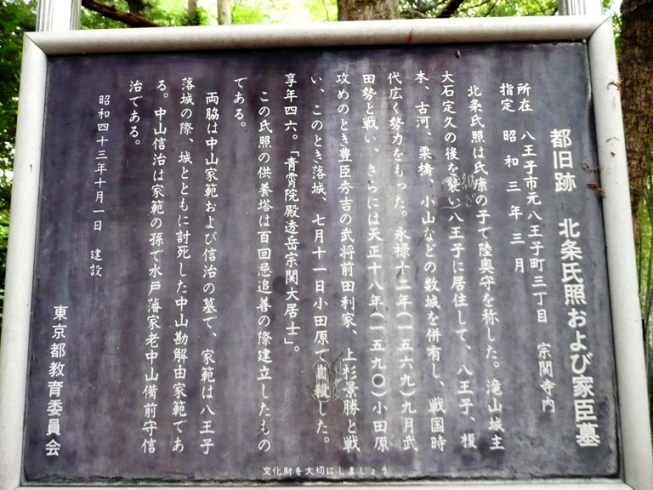 都旧跡　北条氏照および家臣墓
所在　八王子市元八王子町三丁目　宗関寺内
指定　昭和三年三月
北条氏照は氏康の子で陸奥守を称した。滝山城主
大石定久の後を襲い八王子に居住して、八王子、榎
本、古河、栗橋、小山などの数城を併有し、戦国時
代広く勢力をもった。永禄十二年(一五六九)九月武
田勢と戦い、さらには天正十八年(一五九〇)小田原
攻めのとき豊臣秀吉の武将前田利家、上杉景勝と戦
い、このとき落城、七月十一日小田原で自殺した。
享年四六。「青霄院殿透岳宗関大居士」。
この氏照の供養塔は百回忌追善の際建立したもの
である。
両脇は中山家範および信治の墓で、家範は八王子
落城の際、城とともに討死した中山勘解由家範であ
る。中山信治は家範の孫で水戸藩家老中山備前守信
治である。
昭和四十三年十月一日　建設
東京都教育委員会
文化財を大切にしましょう